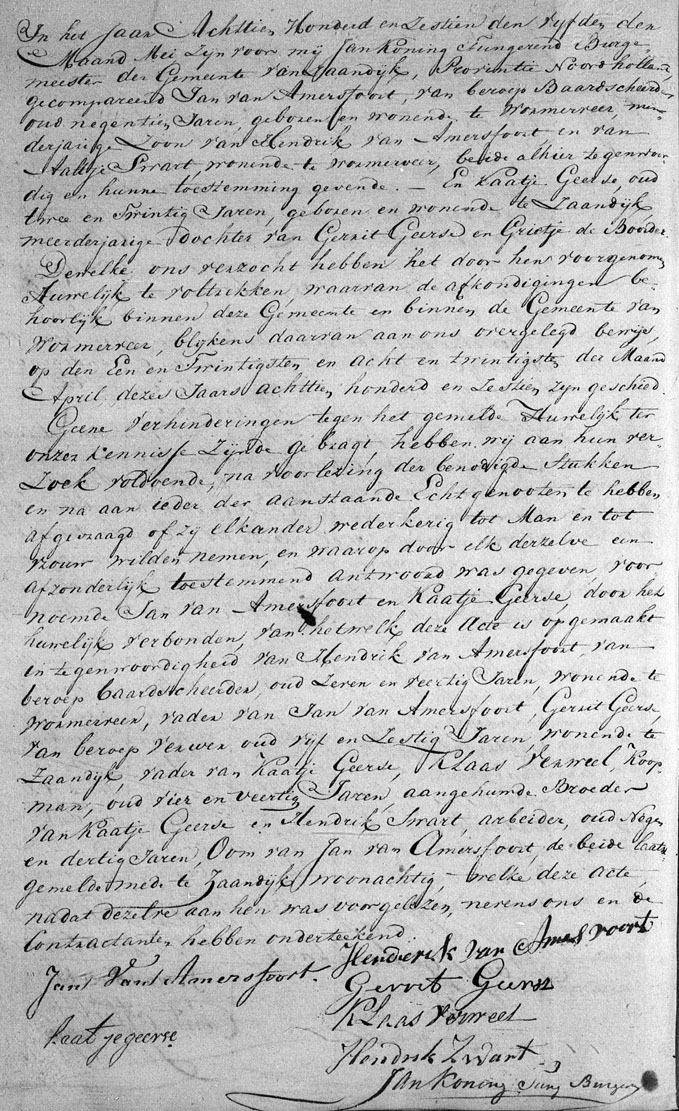 In het Jaar Achttien Honderd en Zestien den vyfden der
Maand Mei Zyn voor my Jan Koning Fungerend Burge-
meester der Gemeente van Zaandyk, Provintie Noord holland,
gecompareerd Jan van Amersfoort, van beroep Baardscheerder
oud negentien Jaren, geboren en wonende te Wormerveer, min-
derjarige Zoon van Hendrik van Amersfoort en van
Aaltje Swart, wonende te Wormerveer, beide alhier tegenwoor
dig en hunne toestemming gevende. — En Kaatje Geerse, oud
twee en Twintig Jaren, geboren en wonende te Zaandyk
meerderjarige Dochter van Gerrit Geerse en Grietje de Boorder.
Dewelke ons verzocht hebben het door hen voorgenomen
Huwelyk te voltrekken, waarvan de afkondigingen be-
hoorlyk binnen deze Gemeente en binnen de Gemeente van
Wormerveer, blykens daarvan aan ons overgelegd bewys,
op den Een en Twintigsten en acht en twintigsten der Maand
April dezes Jaars achttien honderd en Zestien zyn geschied.
Geene Verhinderingen tegen het gemelde Huwelyk ter
onzer kennisse Zynde gebragt, hebben wy aan hun ver
Zoek voldoende, na voorlezing der benodigde Stukken
en na aan ieder der aanstaande Echtgenooten te hebben
afgevraagd of zy elkander wederkerig tot Man en tot
vrouw wilden nemen, en waarop door elk derzelve een
afzonderlyk toestemmend antwoord was gegeven, voor
noemde Jan van Amersfoort en Kaatje Geerse, door het
huwelyk verbonden, van hetwelk deze Acte is opgemaakt
in tegenwoordigheid van Hendrik van Amersfoort, van
beroep baardscheerder, oud Zeven en veertig Jaren, wonende te
Wormerveer, vader van Jan van Amersfoort, Gerrit Geerse,
van beroep Verwer oud vyf en Zestig Jaren, wonende te
Zaandyk, vader van Kaatje Geerse, Klaas Verweel, Koop
man, oud vier en veertig Jaren, aangehuwde Broeder
van Kaatje Geerse en Hendrik Swart, arbeider, oud Negen
en dertig Jaren, Oom van Jan van Amersfoort, de beide laatst
gemelde mede te Zaandyk woonachtig, — welke deze acte,
nadat dezelve aan hen was voorgelezen, nevens ons en de
Contractanten hebben onderteekend.
Henderik van Amesvoort
Jant Vant Amersfoort.
Gerret Geerse
Klaas Verweel
kaat je geerse
Hendrik Zwart
Jan Koning Fung Burgem